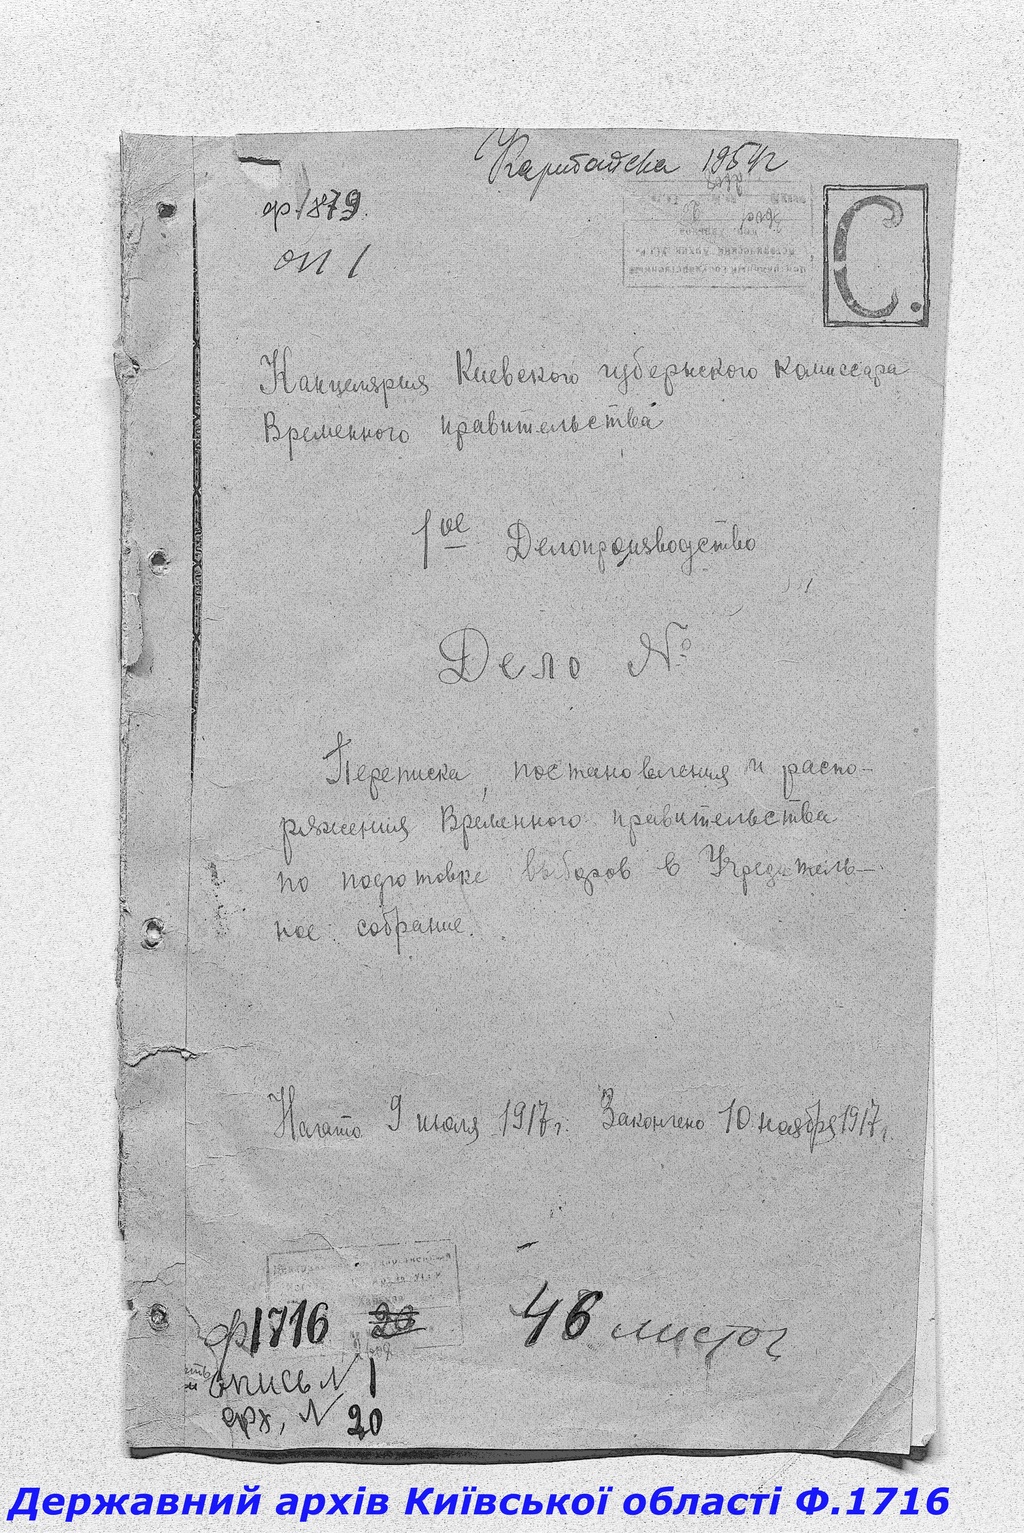 1954г
ф.1879.
оп 1
С.
Канцелярия Киевского губернского комиссара
Временного правительства
1ое Делопроизводство
Дело №
Переписка, постановления и распо-
ряжения Временного правительства
по подготовке выборов в Учредитель-
ное собрание.
Начато 9 июля 1917г. Закончено 10 ноября 1917г.
ф1716 20 46 листов
опись № 1
арх, № 20
Державний архів Київської області Ф.1716